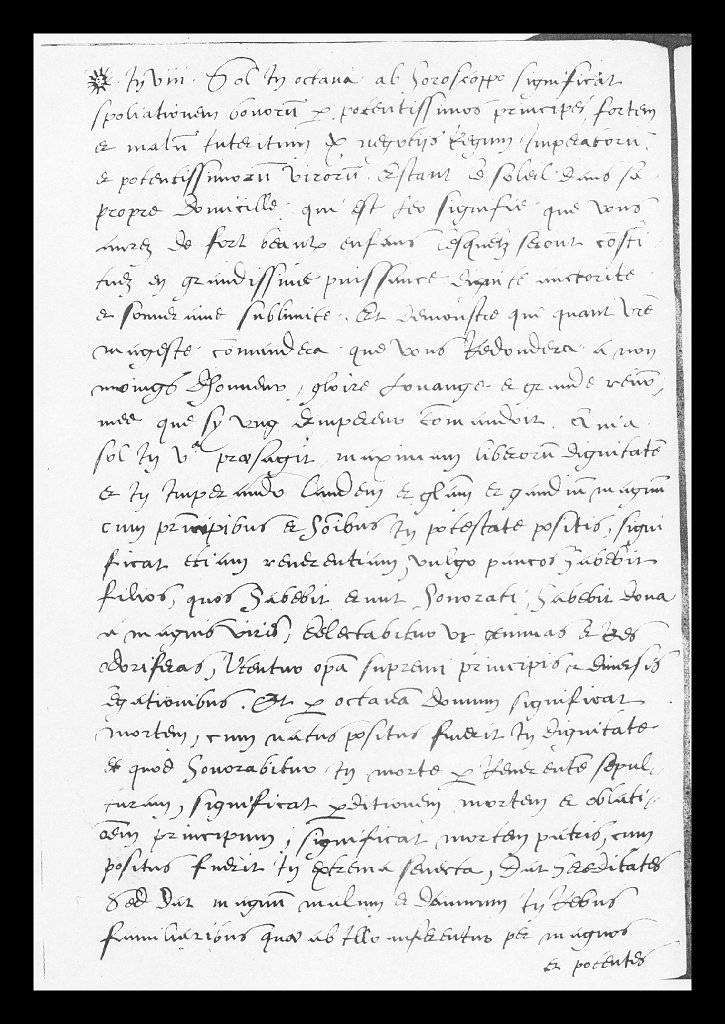 In viii. Sol in octava ab horoscopo significat
spoliationem bonorū p potentissimos principes fortem
et malū interitum ex negotijs Regum Imperatorū
et potentissimorū virorū. Estant le soleil dans sa
propre domicille qui est Leo signifie que vous
aurez de fort beaux enfans lesquelz seront cōsti
tuez en grandissime puissance dignite auctorite
et souueraine sublimite. Et demonstre que quant vr̄e
mageste cōmandera que vous Redondera a non
moings dhonneur, gloire Louange et grande renō,
mee que sy vng Empereur cōmandoit. Quia
sol in vᵃ præsagit maximam liberorū dignitatē
et in Imperando laudem et glām et gaudiū magnū
cum principibus et hōibus in potestate positis, signi
ficat etiam reuerentiam, vulgo paucos habebit
filios, quos habebit erunt honorati, habebit dona
a magnis viris, delectabitur gemmas et Res
odoriferas, Vtentur opā supremi principis et diuersis
. Et p octauā domum significat
mortem, cum natus positus fuerit in dignitate
et quod honorabitur in morte p Reuerentē sepul-
turam, significat pditionem mortem et oblati
oēm principum, significat mortem patris, cum
positus fuerit in extrema senecta, Dat hereditates
Sed Dat magnū malum et damnum in Rebus
familiaribus quæ ab Illo inferentur per magnos
et potentes